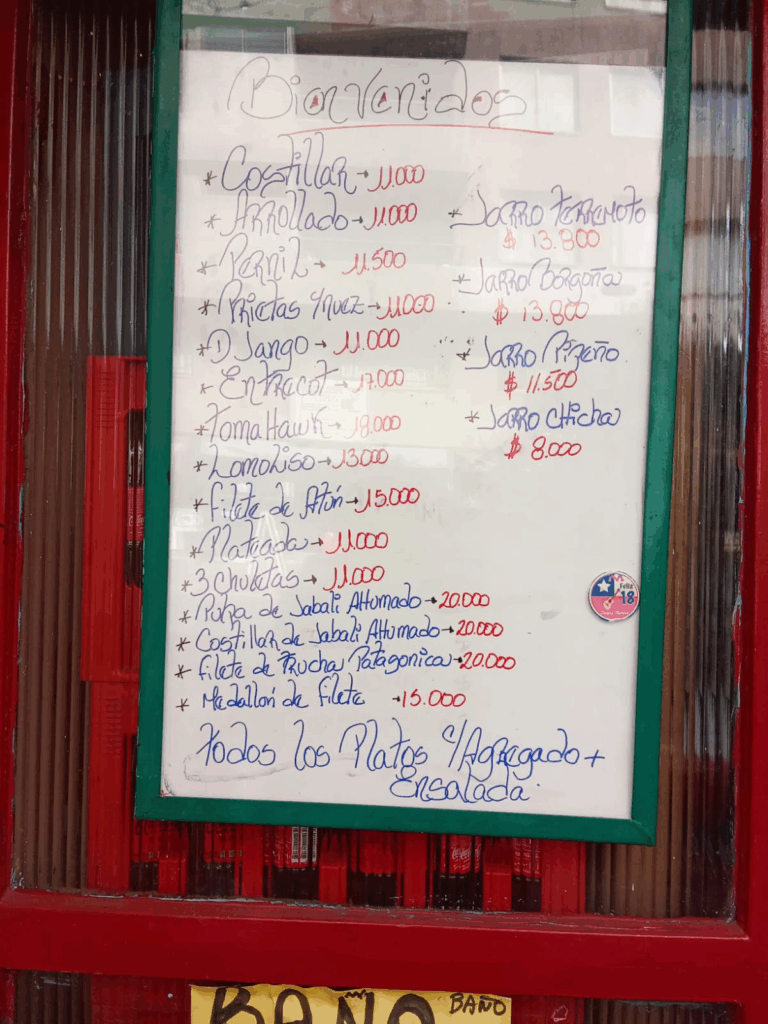 Bienvenidos
* Costillar → 11.000
* Arrollado → 11.000
* Pernil → 11.500
* Prietas c/Nuez → 11.000
* Django → 11.000
* Entrecot → 17.000
* TomaHawk → 18.000
* LomoLiso → 13.000
* Filete de Atún → 15.000
* Plateada → 11.000
* 3 chuletas → 11.000
* Pulpa de Jabali AHumado → 20.000
* Costillar de Jabali AHumado → 20.000
* Filete de Trucha Patagonica → 20.000
* Medallon de filete → 15.000
* Jarro Terremoto
$ 13.800
* Jarro Borgoña
$ 13.800
* Jarro Pipeño
$ 11.500
* Jarro Chicha
$ 8.000
Feliz
18
Todos los Platos c/Agregado +
Ensalada.
BAÑO
BAÑO